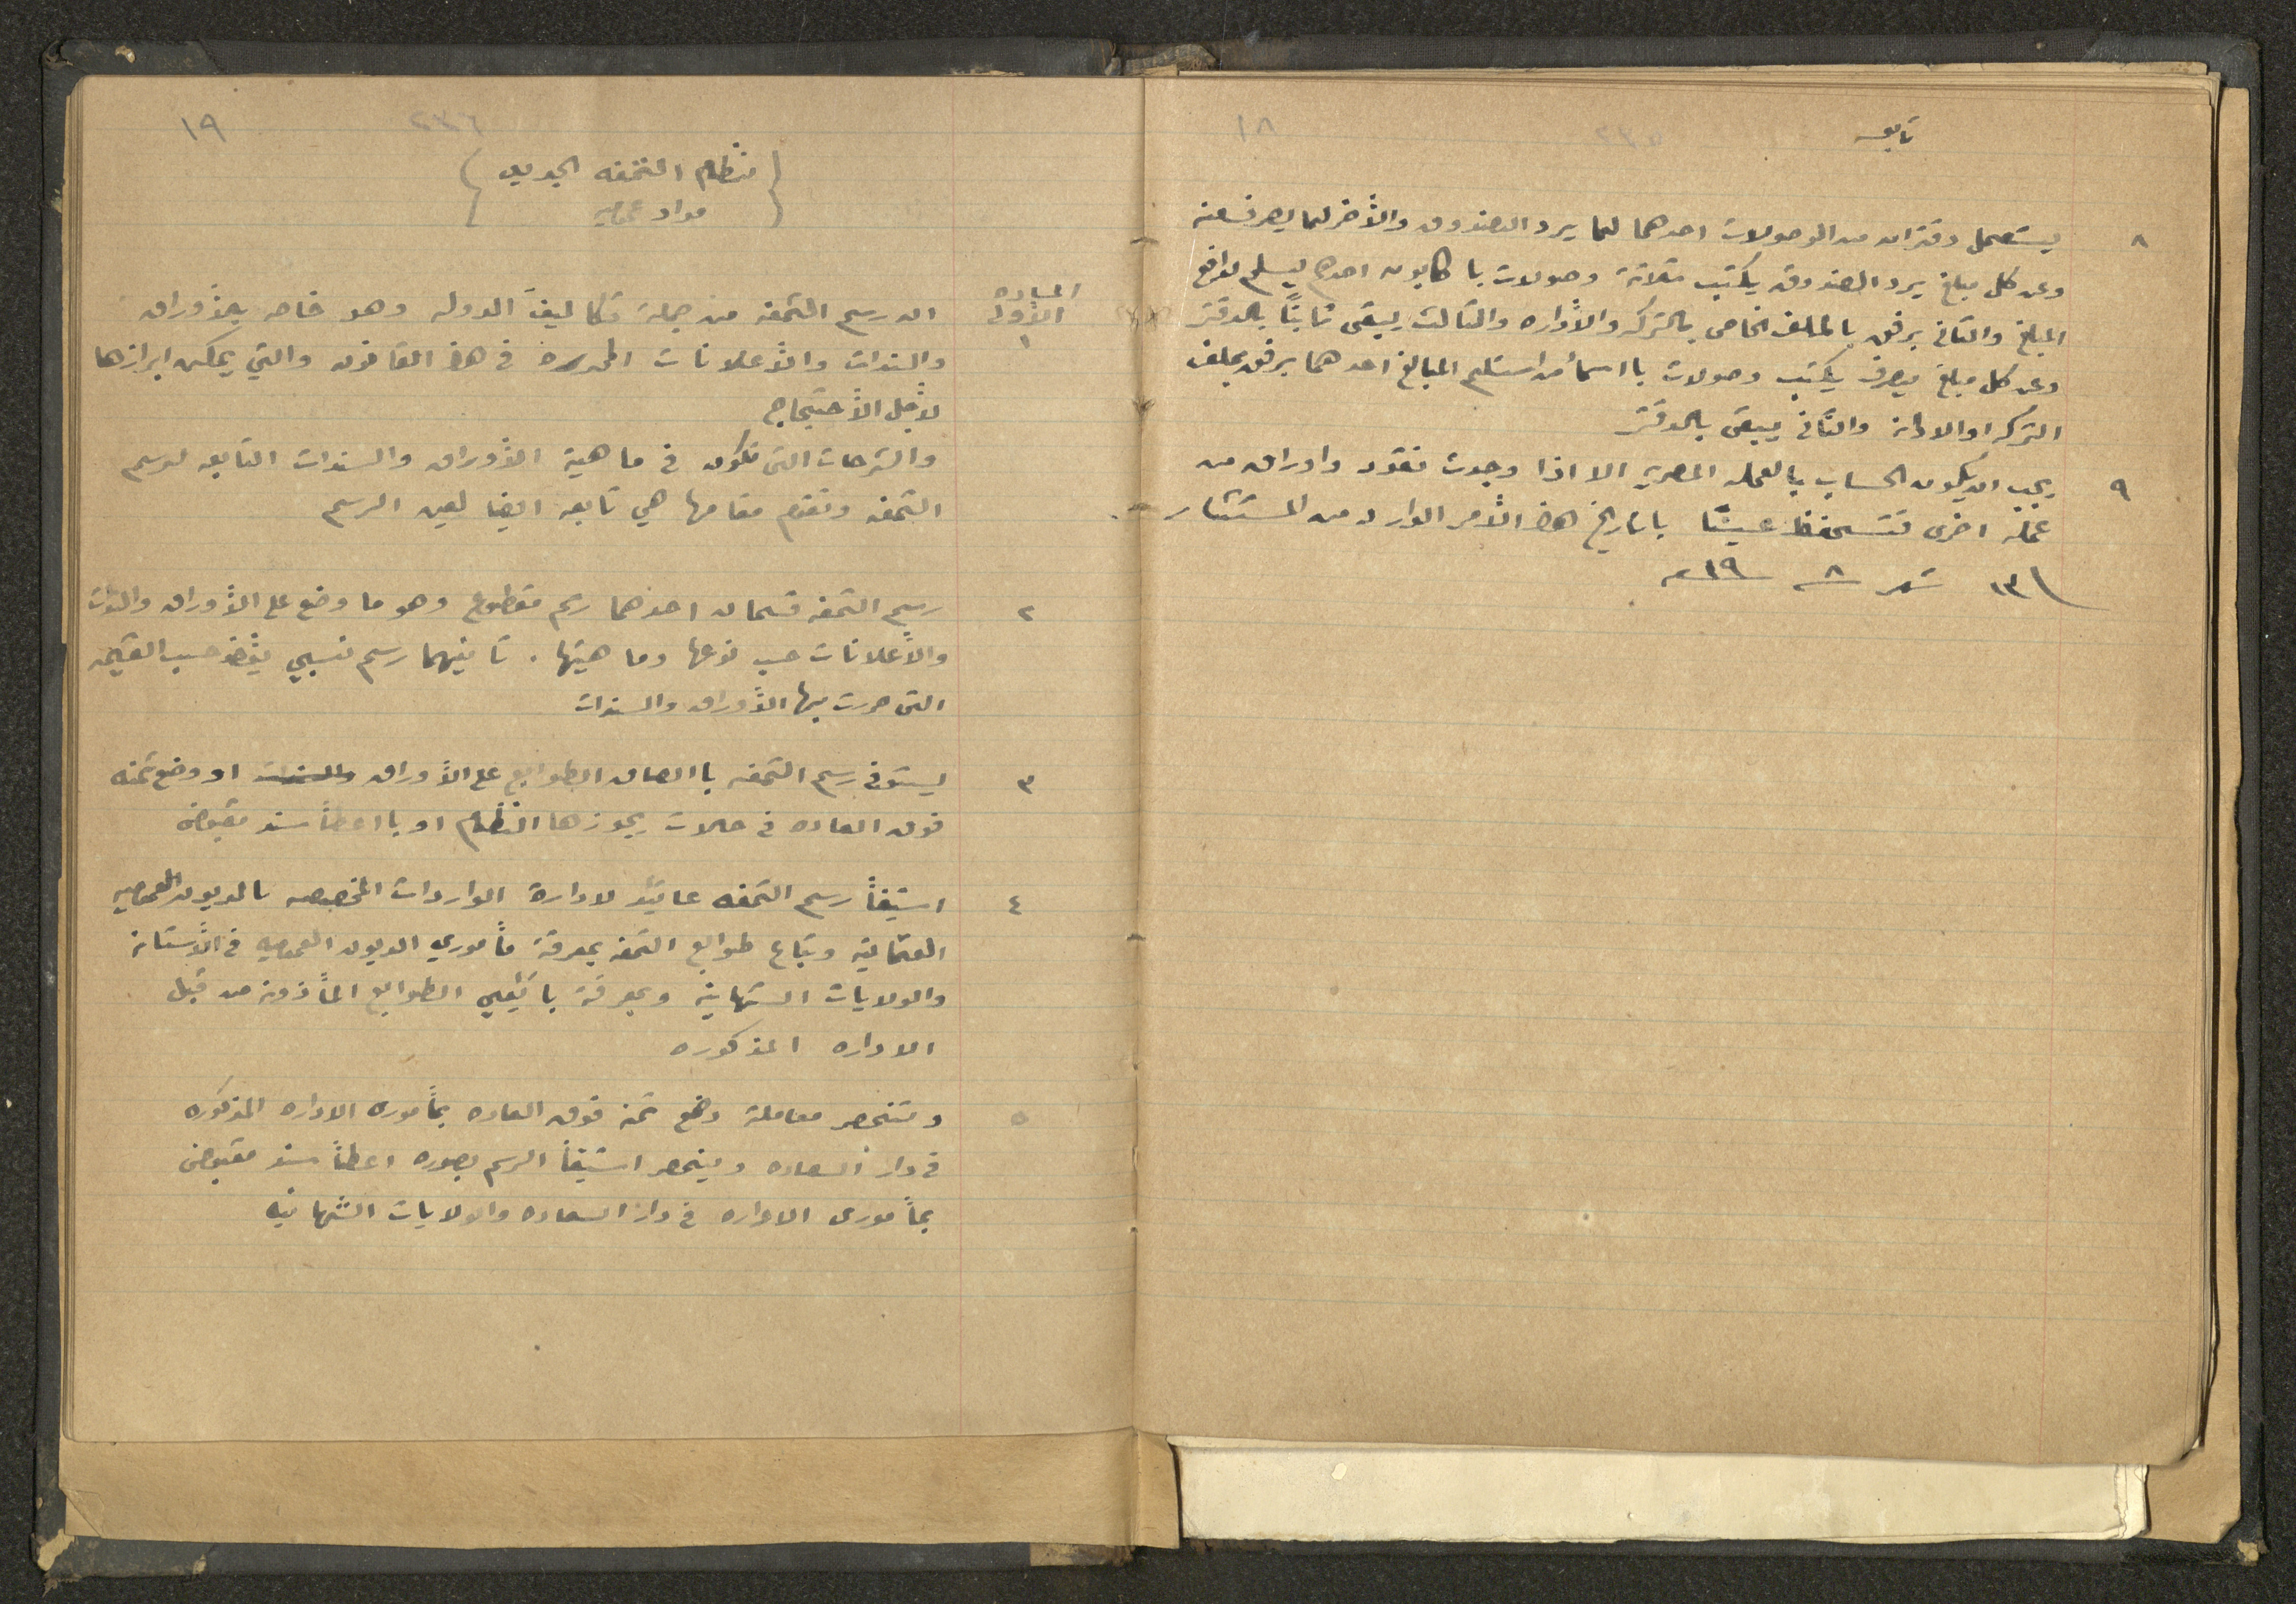 ١٨
٢٣٥
تابعه
٨ يستعمل دفتران من الوصولات احدهما لما يرد الصندوق والأخر لما يصرف منه
وعن كل مبلغ يرد الصندوق يكتب ثلاثة وصولات با كابون احدهم يسلم لدافع
المبلغ والثاني يرفق بالملف الخاص بالتركه والأداره والثالث يبقى ثابتاً بالدفتر
وعن كل مبلغ يصرف يكتب وصولات با اسما من استلم المبالغ احدهما يرفق بملف
التركه او الادارة والثاني يبقى بالدفتر
٩ يجب ان يكون الحساب بالعمله المصريه الا اذا وجدت نقود واوراق من
عملة اخرى فتحفظ عيناً باتاريخ هذا الأمر الوارد من المستشار
١٣ شهر ٨ سنه ١٩
١٩
٢٣٦
{ نظام التمغه الجديد }
{ مواد عموميه }
الماده
الأولى
١ ان رسم التمغه من جملة تكاليف الدوله وهو خاص بالأوراق
والسندات والأعلانات المحرره في هذا القانون والتي يمكن ابرازها
لأجل الأحتجاج
والشرحات التى تكون في ماهية الأوراق والسندات التابعه لرسم
التمغه وتقوم مقامها هي تابعه ايضا لعين الرسم
٢ رسم التمغه قسمان احدهما رسم مقطوع وهو ما وضع على الأوراق والسندات
والأعلانات حسب نوعها وماهيتها . ثانيهما رسم نسبي يؤخذ حسب القيمه
التى حررت بها الأوراق والسندات
٣ يستوفى رسم التمغه با الصاق الطوابع على الأوراق والسندات او وضع تمغه
فوق العاده في حالات يجوزها النظام او با اعطاً سند مقبوض
٤ استيفاً رسم التمغه عائد لادارة الواردات المخصصه بالديون العموميه
العثمانيه وتباع طوابع التمغه بمعرفة مأموري الديون العموميه في الأستانه
والولايات الشاهانيه وبمعرفة بائعي الطوابع المأذونه من قبل
الاداره المذكوره
٥ وتنحصر معاملة وضع تمغه فوق العاده بمأمورى الاداره المذكوره
في دار السعاده وينحصر استيفاً الرسم بصوره اعطاً سند مقبوض
بمأمورى الاداره في دار السعاده والولايات الشاهانيه